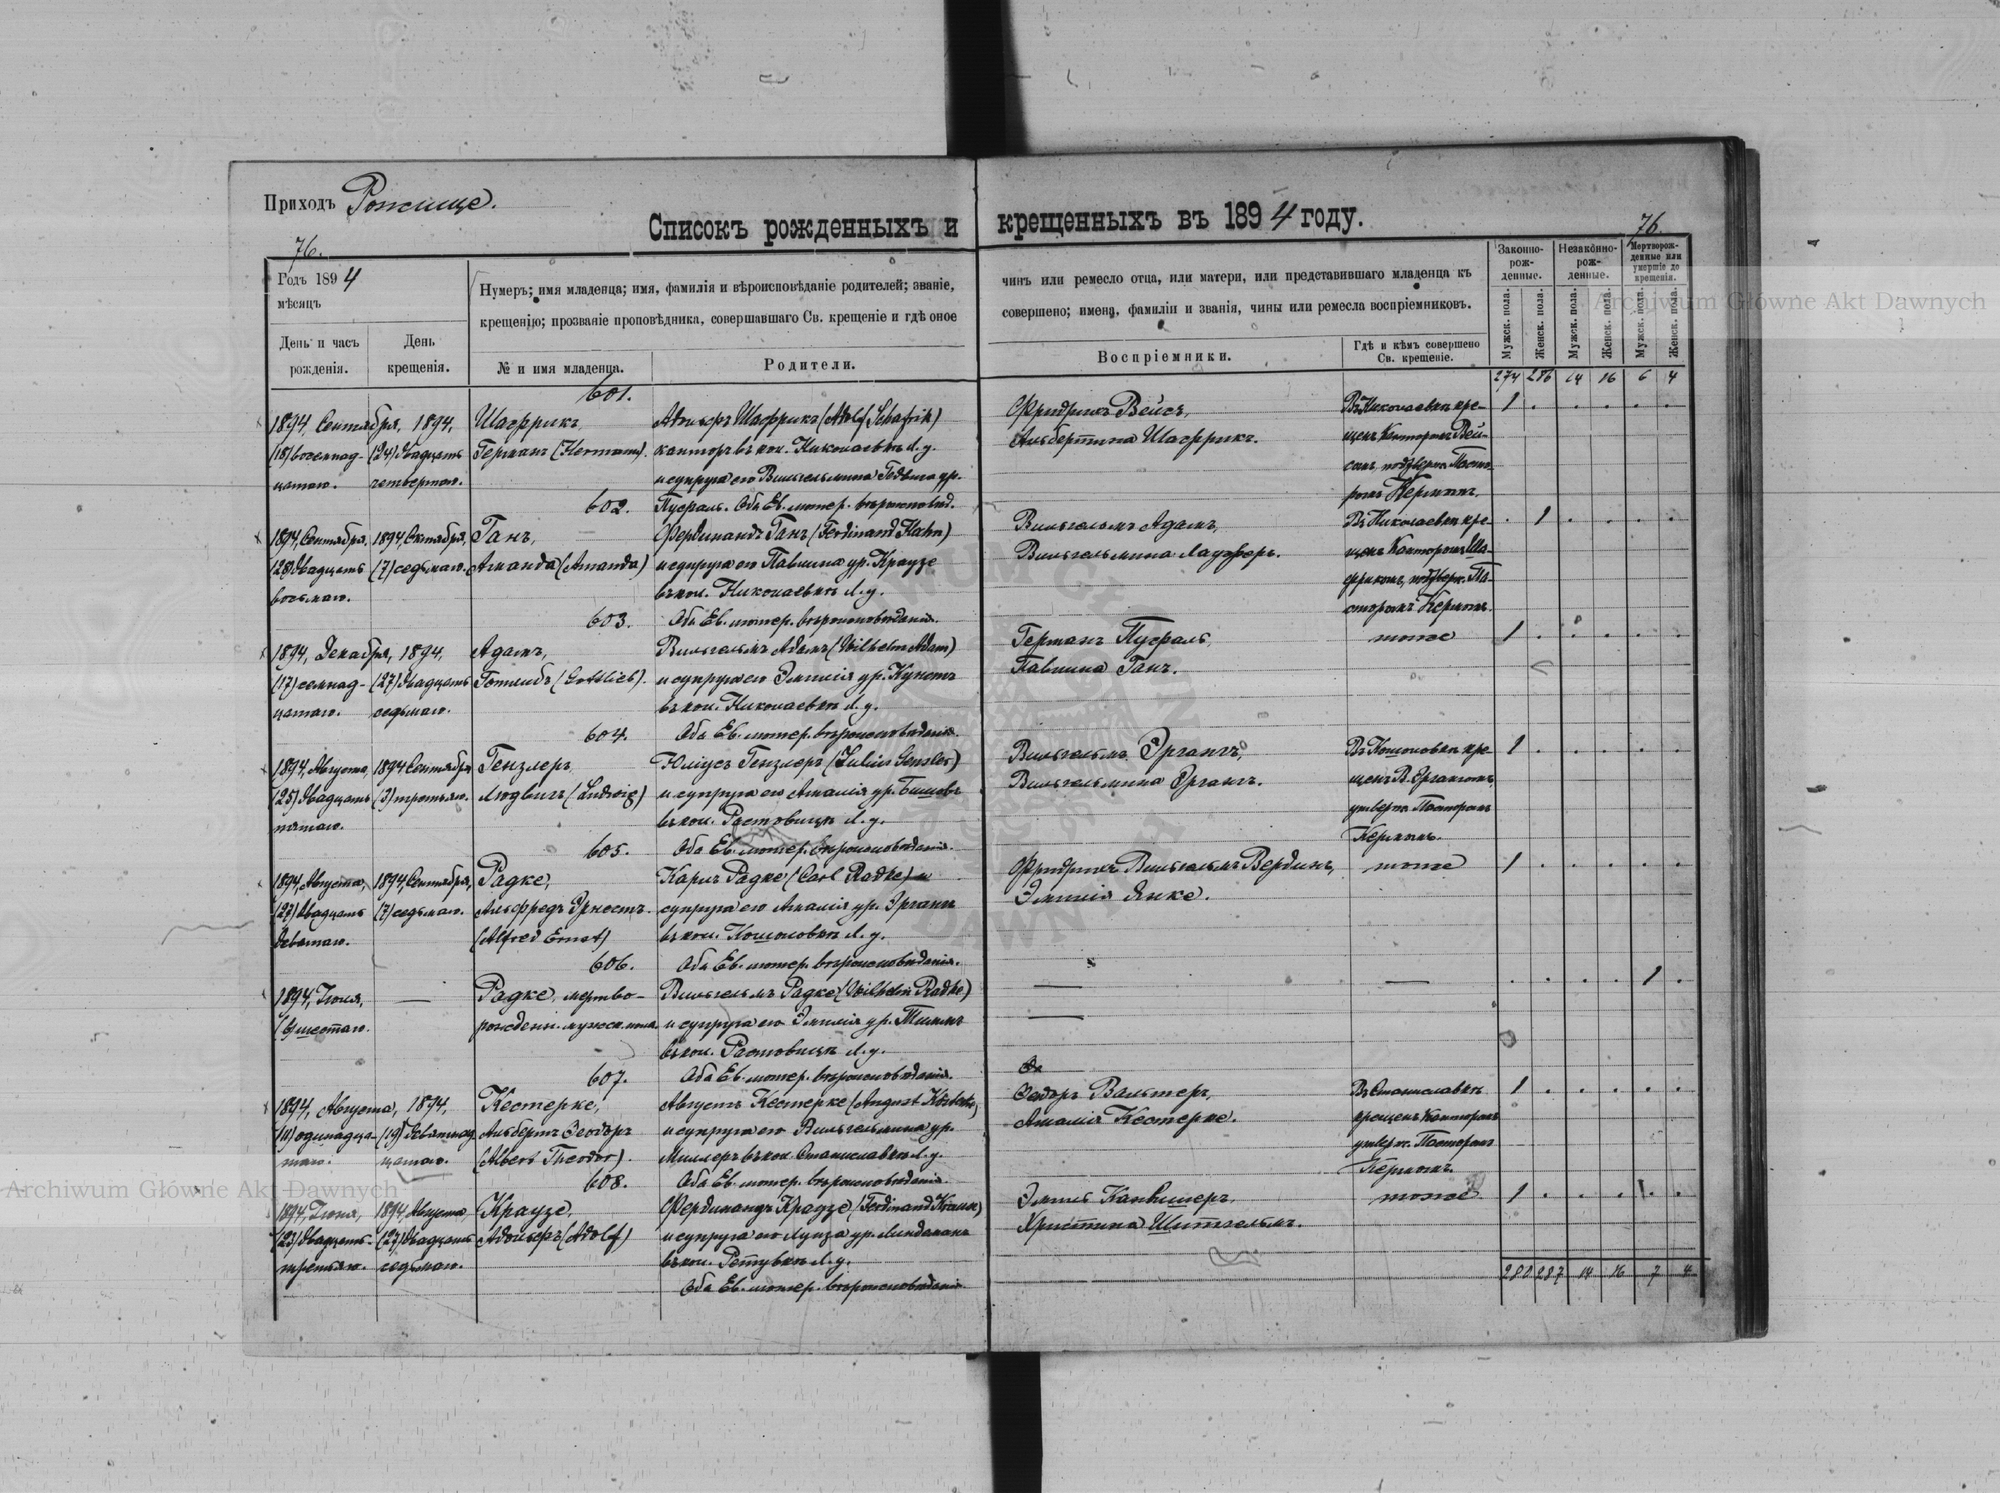 Приходъ Рожище.
Списокъ рожденныхъ и крещенныхъ въ 1894 году.
76.
76.
Годъ 1894
мѣсяцъ
День и часъ рожденія.
День крещенія.
Нумеръ; имя младенца; имя, фамилія и вѣроисповѣданіе родителей; званіе,
крещенію; прозваніе проповѣдника, совершавшаго Св. крещеніе и гдѣ оное
№ и имя младенца.
Родители.
чинъ или ремесло отца, или матери, или представившаго младенца къ
совершено; имена, фамиліи и званія, чины или ремесла воспріемниковъ.
Воспріемники.
Гдѣ и кѣмъ совершено
Св. крещеніе.
Законно-
рож-
денные.
Незаконно-
рож-
денные.
Мертворож-
денные или
умершіе до
крещенія.
Мужск. пола.
Женск. пола.
Мужск. пола.
Женск. пола.
Мужск. пола.
Женск. пола.
274 286 14 16 6 4
601.
1894, Сентября, 1894,
(18) восемнад- (24) двадцать
цатаго. четвертаго.
Шафрикъ,
Германъ (Hermann).
Адольфъ Шафрикъ (Adolf Schafrik)
канторъ въ кол. Николаевкѣ Л. у.
и супруга его Вильгельмина Гедвига ур.
Пуфаль. Оба Ев. лютер. вѣроисповѣд.
Фридрихъ Вейсъ,
Альбертина Шафрикъ.
Въ Николаевкѣ кре-
щенъ Канторомъ Вей-
сомъ, подтвержд. Пасто-
ромъ Кермомъ.
1 . . . . .
602.
1894, Сентября, 1894, Октября,
(28) двадцать (7) седьмаго.
восьмаго.
Ганъ,
Аманда (Amanda)
Фердинандъ Ганъ (Ferdinand Hahn)
и супруга его Павлина ур. Краузе
въ кол. Николаевкѣ Л. у.
Оба Ев. лютер. вѣроисповѣданія.
Вильгельмъ Адамъ,
Вильгельмина Лауферъ.
Въ Николаевкѣ кре-
щенъ Канторомъ Ша-
фрикомъ, подтвержд. Па-
сторомъ Кермомъ.
. 1 . . . .
603.
1894, Декабря, 1894,
(17) семнад- (27) двадцать
цатаго. седьмаго.
Адамъ,
Готлибъ (Gottlieb).
Вильгельмъ Адамъ (Wilhelm Adam)
и супруга его Эмилія ур. Кунстъ
въ кол. Николаевкѣ Л. у.
Оба Ев. лютер. вѣроисповѣданія.
Германъ Пуфаль,
Павлина Ганъ.
тоже
1 . . . . .
604.
1894, Августа, 1894 Сентября
(25) двадцать (3) третьяго.
пятаго.
Гензлеръ,
Людвигъ (Ludwig)
Юліусъ Гензлеръ (Julius Gensler)
и супруга его Амалія ур. Бишовъ
въ кол. Растовицкѣ Л. у.
Оба Ев. лютер. вѣроисповѣданія.
Вильгельмъ Эргангъ,
Вильгельмина Эргангъ.
кре-
щенъ В. Эргангомъ,
утвержд. Пасторомъ
Кермомъ.
1 . . . . .
605.
1894, Августа, 1894, Сентября,
(29) двадцать (7) седьмаго.
девятаго.
Радке,
Альфредъ Эрнестъ.
(Alfred Ernst)
Карлъ Радке (Carl Radke) и
супруга его Амалія ур. Эргангъ
въ кол. Л. у.
Оба Ев. лютер. вѣроисповѣданія.
Фридрихъ Вильгельмъ Вердинъ,
Эмилія Янке.
тоже
1 . . . . .
606.
1894, Іюня,
(6) шестаго.
—
Радке, мертво-
рожден. мужск. пола
Вильгельмъ Радке (Wilhelm Radke)
и супруга его Эмилія ур. Тиммъ
въ кол. Растовицкѣ Л. у.
Оба Ев. лютер. вѣроисповѣданія.
—
—
—
. . . . 1 .
607.
1894, Августа, 1894,
(11) одинадца- (19) девятнад-
таго. цатаго.
Кестерке,
Альбертъ Теодоръ
(Albert Theodor).
Августъ Кестерке (August Kösterke)
и супруга его Вильгельмина ур.
Миллеръ въ кол. Станиславкѣ Л. у.
Оба Ев. лютер. вѣроисповѣданія.
Ѳедоръ Вальтеръ,
Амалія Кестерке.
Въ Станиславкѣ
крещенъ Канторомъ
утвержд. Пасторомъ
Кермомъ.
1 . . . . .
608.
1894, Іюня, 1894, Августа,
(23) двадцать- (27) двадцать
третьяго. седьмаго.
Краузе,
Адольфъ (Adolf)
Фердинандъ Краузе (Ferdinand Krause)
и супруга его Луиза ур. Линдеманъ
въ кол. Л. у.
Оба Ев. лютер. вѣроисповѣданія
Эмиль
Христина
тоже
1 . . . . .
280 287 14 16 7 4
Archiwum Główne Akt Dawnych
Archiwum Główne Akt Dawnych